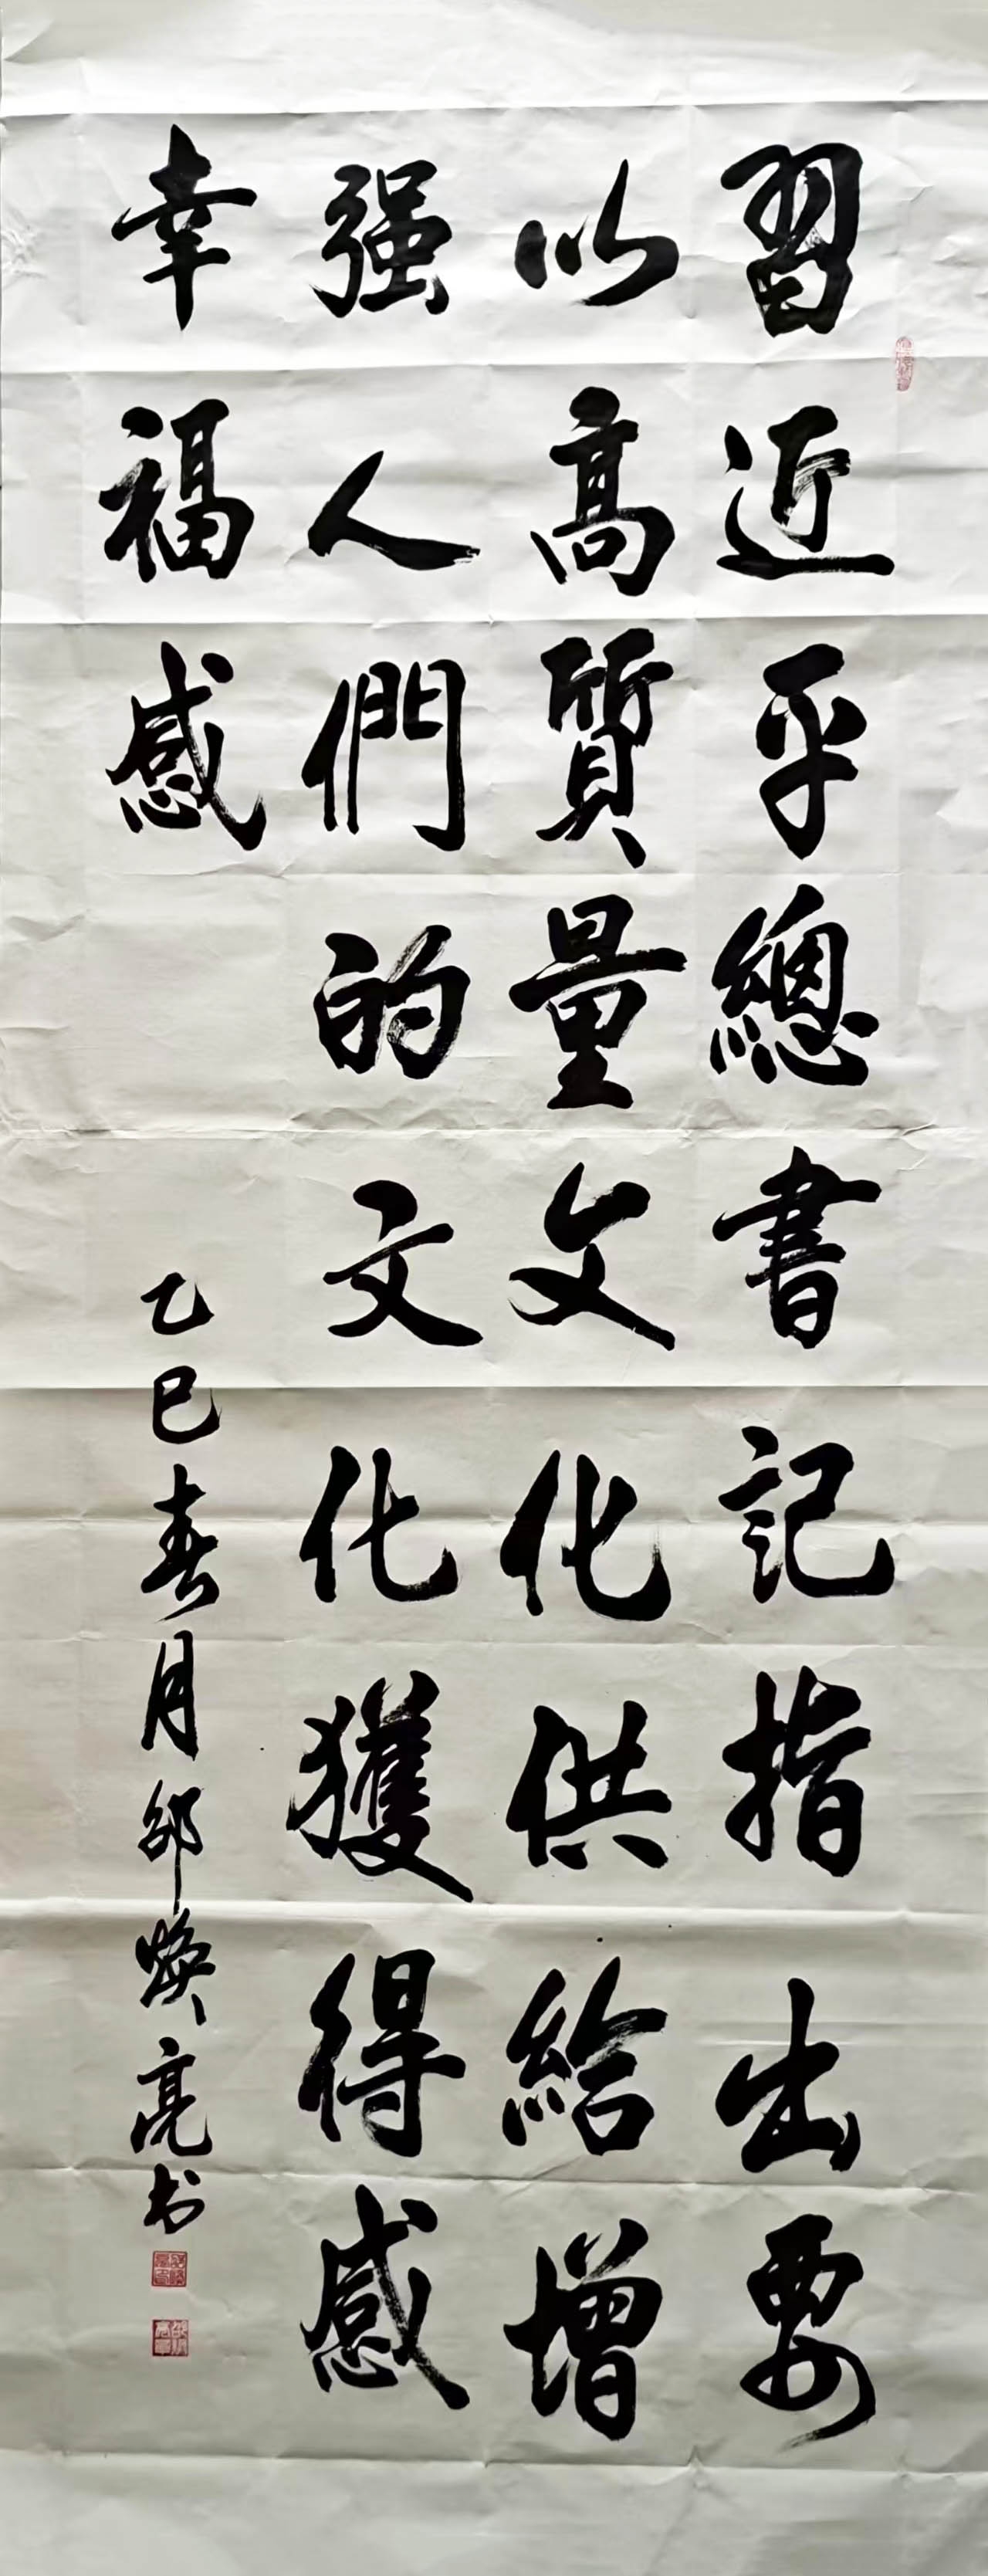 習近平總書記指出要
以高質量文化供給增
强人們的文化獲得感
幸福感
乙巳春月邵煥亮书